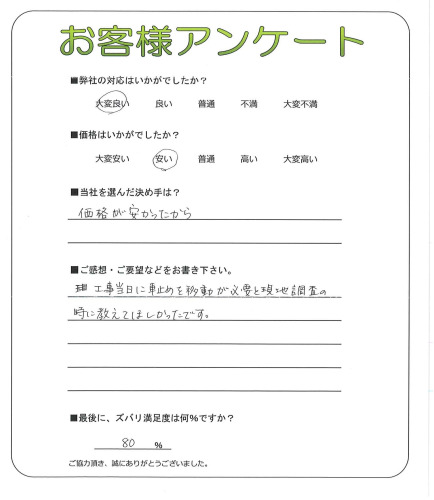 お客様アンケート
■弊社の対応はいかがでしたか？
大変良い 良い 普通 不満 大変不満
■価格はいかがでしたか？
大変安い 安い 普通 高い 大変高い
■当社を選んだ決め手は？
価格が安かったから
■ご感想・ご要望などをお書き下さい。
工事当日に車止めを移動が必要と現地調査の
時に教えてほしかったです。
■最後に、ズバリ満足度は何％ですか？
80 ％
ご協力頂き、誠にありがとうございました。